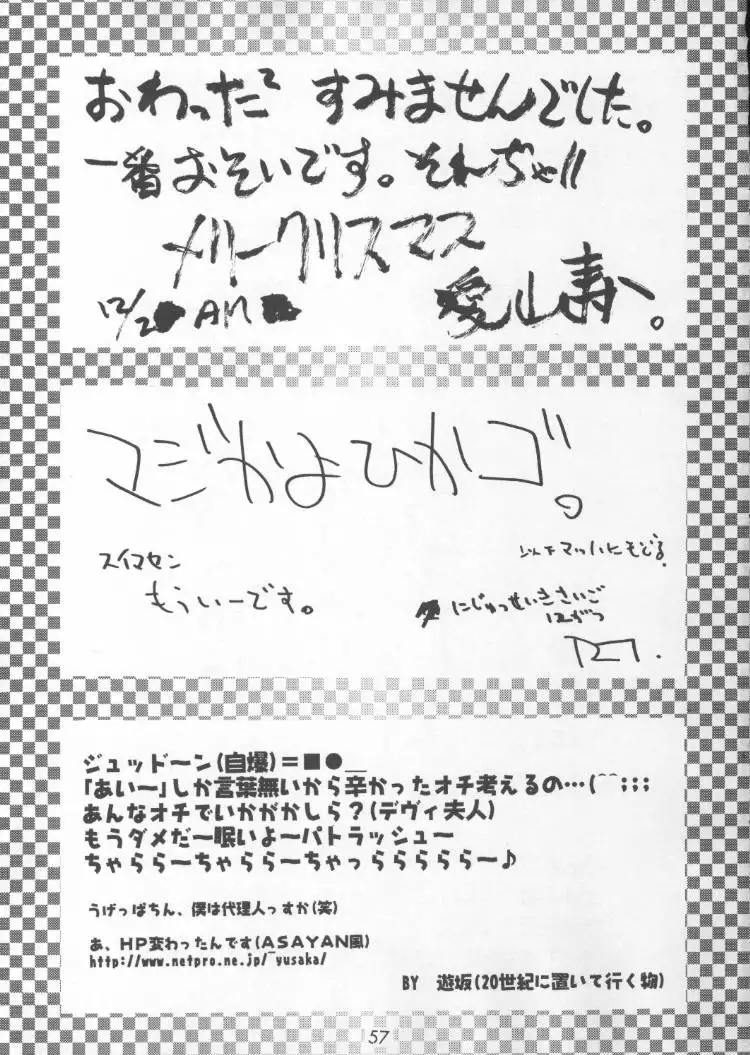 おわった〜 すみませんでした。
一番おそいです。それぢゃ!!
メリークリスマス
12/2 AM
愛山寿一。
マジかよひかゴ。
スイマセン
もういーです。
にじゅっせいきさいご
12がつ
ジュッドーン(自爆)＝■●＿
「あい〜」しか言葉無いから辛かったオチ考えるの…(^^;;;
あんなオチでいかがかしら？(デヴィ夫人)
もうダメだ〜眠いよ〜パトラッシュ〜
ちゃらら〜ちゃらら〜ちゃっららららら〜♪
うげっぱちん、僕は代理人っすか(笑)
あ、HP変わったんです(ASAYAN風)
http://www.netpro.ne.jp/~yusaka/
BY 遊坂(20世紀に置いて行く物)
57